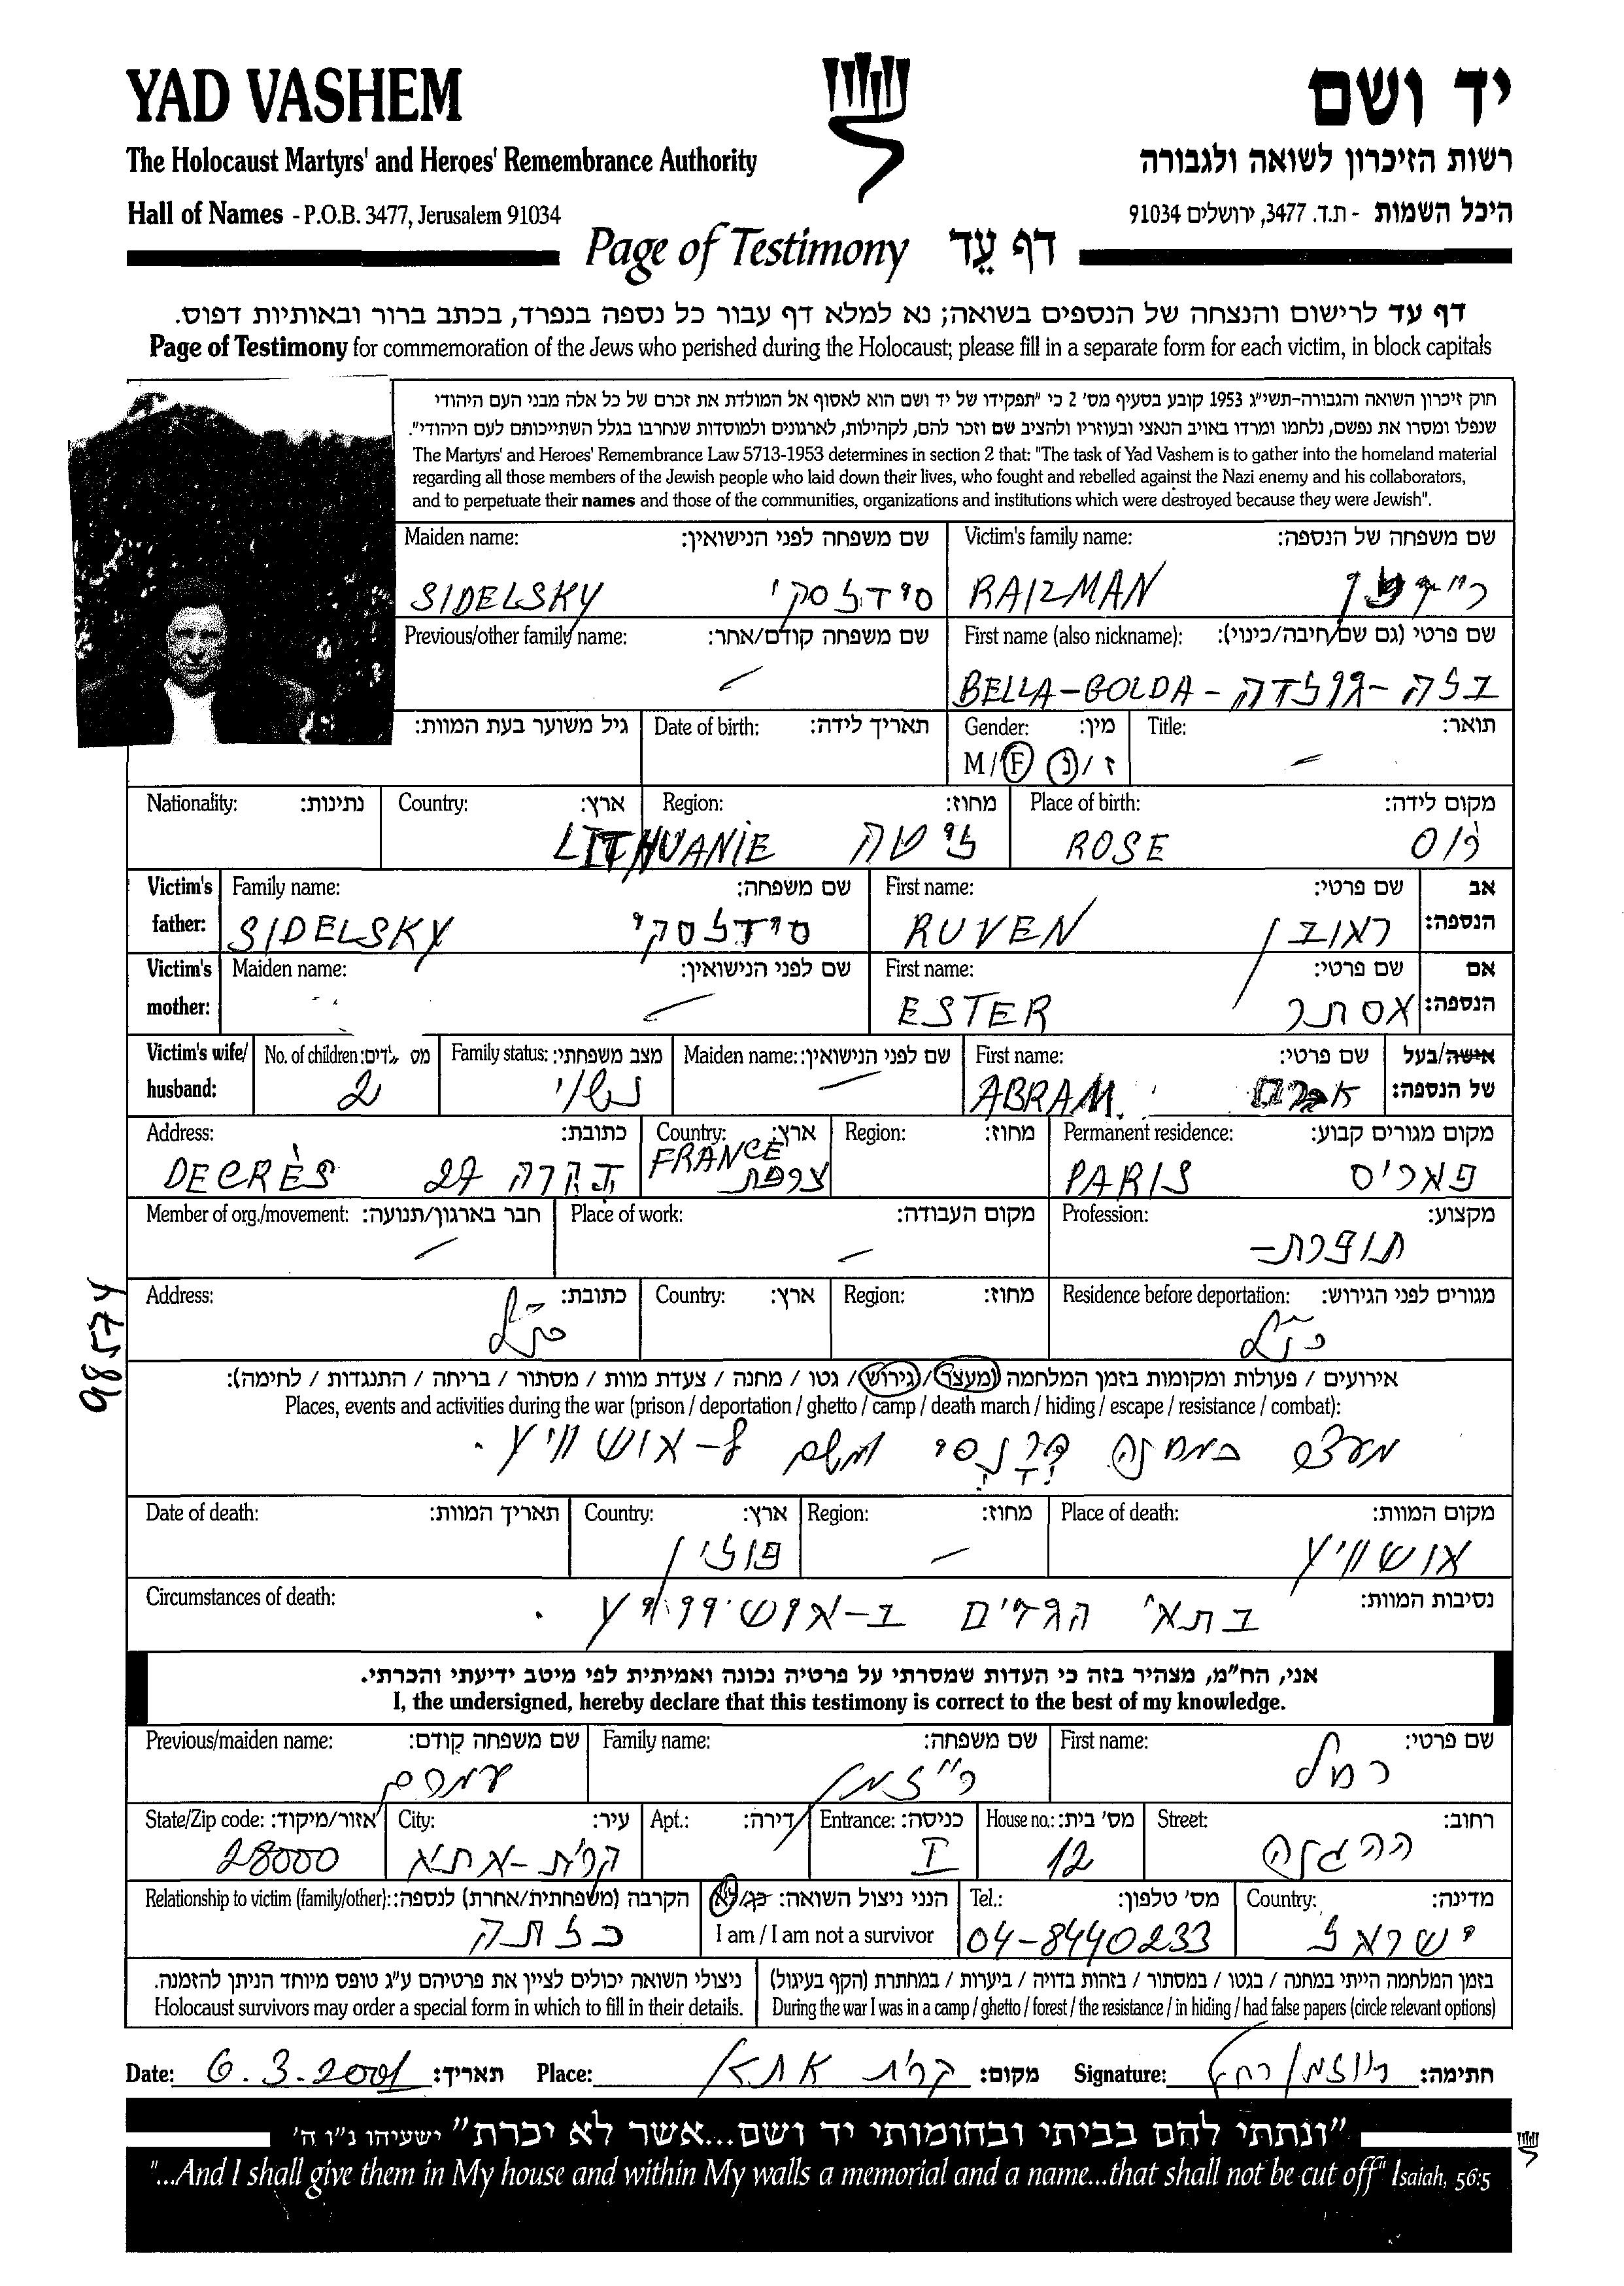 YAD VASHEM
יד ושם
The Holocaust Martyrs' and Heroes' Remembrance Authority
רשות הזיכרון לשואה ולגבורה
Hall of Names - P.O.B. 3477, Jerusalem 91034
היכל השמות - ת.ד. 3477, ירושלים 91034
Page of Testimony דף עֵד
דף עד לרישום והנצחה של הנספים בשואה; נא למלא דף עבור כל נספה בנפרד, בכתב ברור ובאותיות דפוס.
Page of Testimony for commemoration of the Jews who perished during the Holocaust; please fill in a separate form for each victim, in block capitals
חוק זיכרון השואה והגבורה-תשי"ג 1953 קובע בסעיף מס' 2 כי "תפקידו של יד ושם הוא לאסוף אל המולדת את זכרם של כל אלה מבני העם היהודי
שנפלו ומסרו את נפשם, נלחמו ומרדו באויב הנאצי ובעוזריו ולהציב שם וזכר להם, לקהילות, לארגונים ולמוסדות שנחרבו בגלל השתייכותם לעם היהודי".
The Martyrs' and Heroes' Remembrance Law 5713-1953 determines in section 2 that: "The task of Yad Vashem is to gather into the homeland material
regarding all those members of the Jewish people who laid down their lives, who fought and rebelled against the Nazi enemy and his collaborators,
and to perpetuate their names and those of the communities, organizations and institutions which were destroyed because they were Jewish".
Maiden name: שם משפחה לפני הנישואין: Victim's family name: שם משפחה של הנספה:
SIDELSKY סידלסקי RAIZMAN
Previous/other family name: שם משפחה קודם/אחר: First name (also nickname): שם פרטי (גם שם חיבה/כינוי):
BELLA-GOLDA - בלה-גולדה
גיל משוער בעת המוות: Date of birth: תאריך לידה: Gender: מין: Title: תואר:
M/F ז/נ
Nationality: נתינות: Country: ארץ: Region: מחוז: Place of birth: מקום לידה:
LITHUANIE ליטה ROSE רוס
Victim's father: Family name: שם משפחה: First name: שם פרטי: אב הנספה:
SIDELSKY סידלסקי RUVEN ראובן
Victim's mother: Maiden name: שם לפני הנישואין: First name: שם פרטי: אם הנספה:
ESTER אסתר
Victim's wife/husband: No. of children: מס' ילדים: Family status: מצב משפחתי: Maiden name: שם לפני הנישואין: First name: שם פרטי: אישה/בעל של הנספה:
2 נשוי ABRAM. אברם
Address: כתובת: Country: ארץ: Region: מחוז: Permanent residence: מקום מגורים קבוע:
DECRÈS דקרה 27 FRANCE צרפת PARIS פאריס
Member of org./movement: חבר בארגון/תנועה: Place of work: מקום העבודה: Profession: מקצוע:
תופרת-
98574
Address: כתובת: Country: ארץ: Region: מחוז: Residence before deportation: מגורים לפני הגירוש:
כנ"ל כנ"ל
אירועים / פעולות ומקומות בזמן המלחמה (מעצר/גירוש/ גטו / מחנה / צעדת מוות / מסתור / בריחה / התנגדות / לחימה):
Places, events and activities during the war (prison / deportation / ghetto / camp / death march / hiding / escape / resistance / combat):
מעצר במחנה דרנסי ומשם ל-אושוויץ.
Date of death: תאריך המוות: Country: ארץ: Region: מחוז: Place of death: מקום המוות:
פולין אושוויץ
Circumstances of death: נסיבות המוות:
בתאי הגזים ב-אושוויץ.
אני, הח"מ, מצהיר בזה כי העדות שמסרתי על פרטיה נכונה ואמיתית לפי מיטב ידיעתי והכרתי.
I, the undersigned, hereby declare that this testimony is correct to the best of my knowledge.
Previous/maiden name: שם משפחה קודם: Family name: שם משפחה: First name: שם פרטי:
רייזמן רחל
State/Zip code: אזור/מיקוד: City: עיר: Apt.: דירה: Entrance: כניסה: House no.: מס' בית: Street: רחוב:
28000 קרית-אתא I 12 ההגנה
Relationship to victim (family/other): הקרבה (משפחתית/אחרת) לנספה: הנני ניצול השואה: כן/לא Tel.: מס' טלפון: Country: מדינה:
כלתה I am / I am not a survivor 04-8440233 ישראל
ניצולי השואה יכולים לציין את פרטיהם ע"ג טופס מיוחד הניתן להזמנה. בזמן המלחמה הייתי במחנה / בגטו / במסתור / בזהות בדויה / ביערות / במחתרת (הקף בעיגול)
Holocaust survivors may order a special form in which to fill in their details. During the war I was in a camp / ghetto / forest / the resistance / in hiding / had false papers (circle relevant options)
Date: 6.3.2001 תאריך: Place: קרית אתא מקום: Signature: רייזמן רחל חתימה:
"ונתתי להם בביתי ובחומותי יד ושם...אשר לא יכרת" ישעיהו נ"ו ה'
"...And I shall give them in My house and within My walls a memorial and a name...that shall not be cut off" Isaiah, 56:5